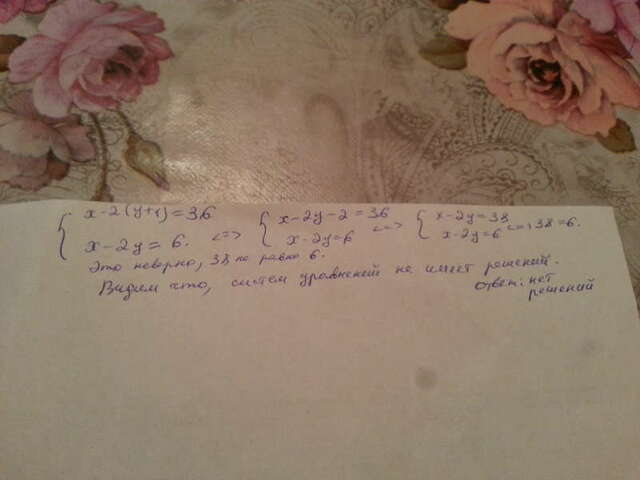 x-2(y+1)=36
x-2y=6. <=> x-2y-2=36
x-2y=6 <=> x-2y=38
x-2y=6 <=> 38=6.
Это неверно, 38 не равно 6.
Видим что, систем уравнений не имеет решений.
Ответ: нет
решений